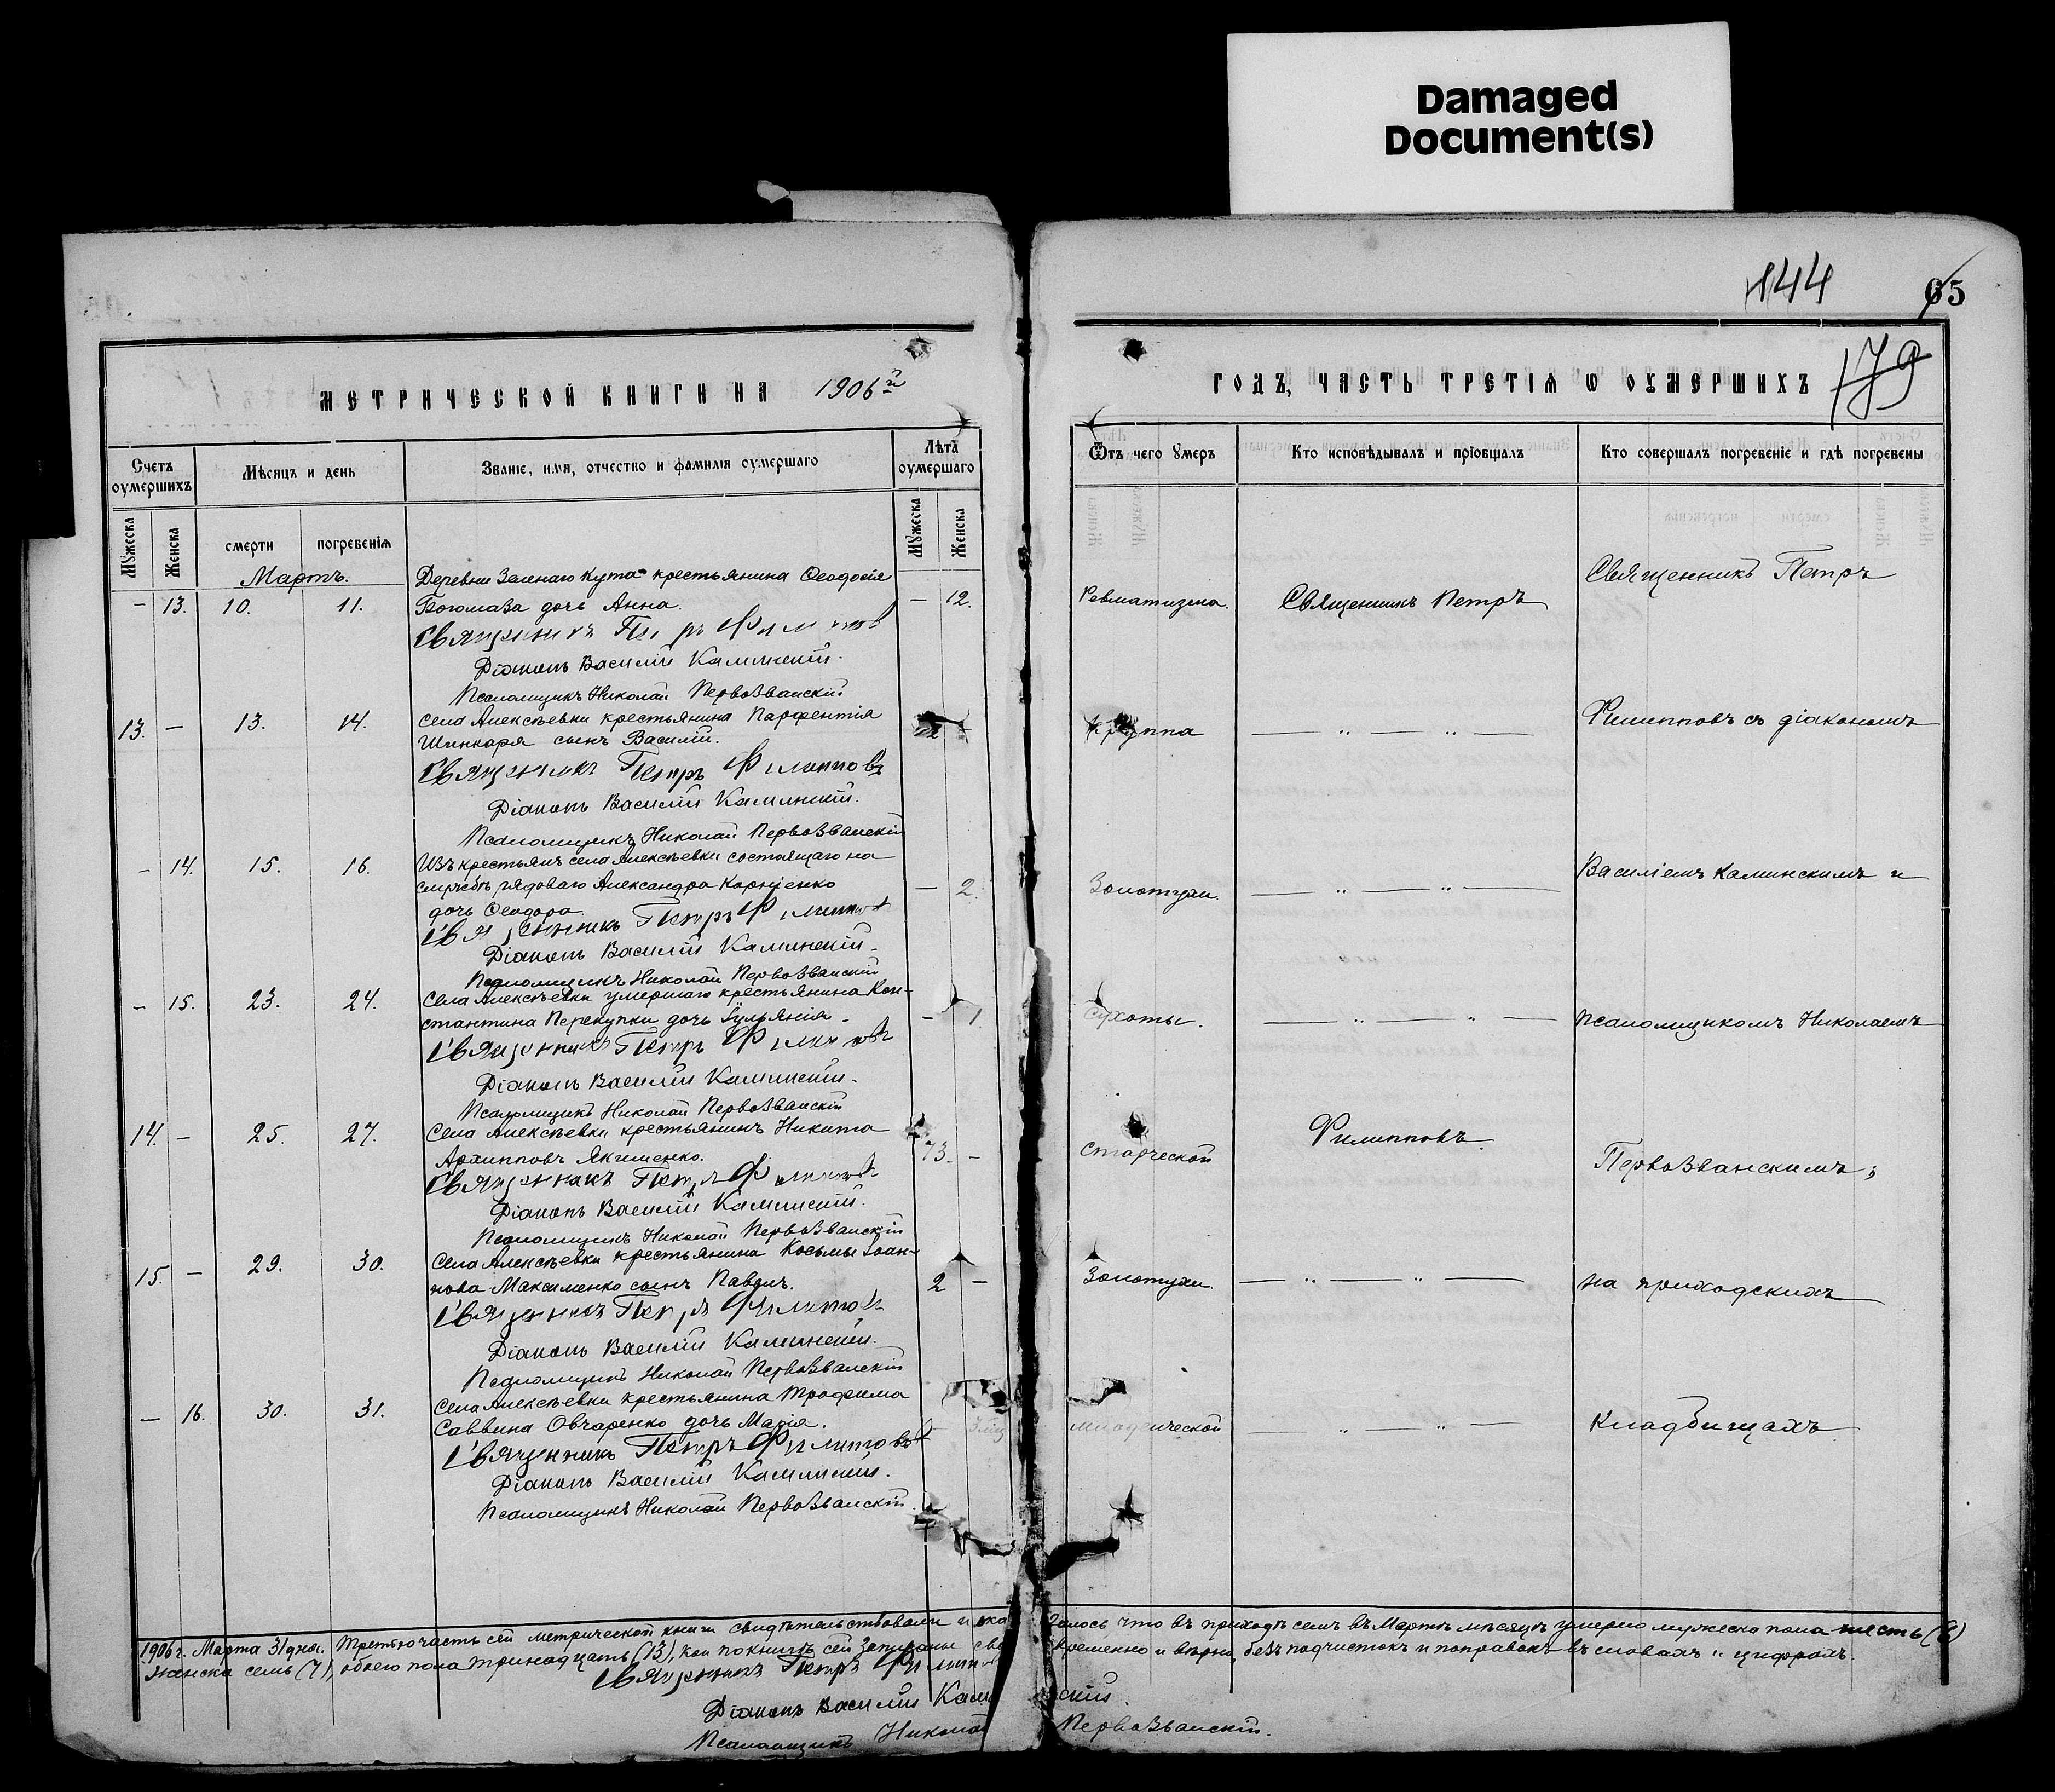 Damaged
Document(s)
144
65
179
МЕТРИЧЕСКОЙ КНИГИ НА 1906й
ГОДЪ, ЧАСТЬ ТРЕТІѦ Ѡ ОУМЕРШИХЪ
Счетъ оумершихъ
Мѣсяцъ и день
Званіе, имя, отчество и фамилія оумершаго
Лѣта оумершаго
Ѿтъ чего умеръ
Кто исповѣдывалъ и пріобщалъ
Кто совершалъ погребеніе и гдѣ погребены
Мужеска
Женска
смерти
погребенія
Мужеска
Женска
Мартъ.
Деревни Зеленаго Кута крестьянина Ѳеодосія
— 13. 10. 11. дочь Анна. — 12. Ревматизма. Священникъ Петръ
Священникъ Петръ
Священникъ Петръ Филипповъ
Діаконъ Василій Каминскій.
Псаломщикъ Николай Первозванскій
13. — 13. 14. Села Алексѣевки крестьянина Парфентія
Шинкаря сынъ Василій. Круппа — „ — „ — Филипповъ съ діакономъ
Священникъ Петръ Филипповъ
Діаконъ Василій Каминскій.
Псаломщикъ Николай Первозванскій
— 14. 15. 16. Изъ крестьянъ села Алексѣевки состоящаго на
службѣ рядоваго Александра Корніенко — 2. Золотухи. — „ — „ — Василіемъ Каминскимъ и
дочь Ѳеодора.
Священникъ Петръ Филипповъ
Діаконъ Василій Каминскій.
Псаломщикъ Николай Первозванскій
— 15. 23. 24. Села Алексѣевки умершаго крестьянина Кон-
стантина Перекупки дочь Іульянія. — 1. Сухоты. — „ — „ — псаломщикомъ Николаемъ
Священникъ Петръ Филипповъ
Діаконъ Василій Каминскій.
Псаломщикъ Николай Первозванскій
14. — 25. 27. Села Алексѣевки крестьянинъ Никита
Архипповъ Якименко. 73. — Старческой Филипповъ. Первозванскимъ;
Священникъ Петръ Филипповъ
Діаконъ Василій Каминскій.
Псаломщикъ Николай Первозванскій
15. — 29. 30. Села Алексѣевки крестьянина Косьмы Іоан-
нова Максименко сынъ Павелъ. 2 — Золотухи. — „ — „ — на приходскихъ
Священникъ Петръ Филипповъ
Діаконъ Василій Каминскій.
Псаломщикъ Николай Первозванскій
— 16. 30. 31. Села Алексѣевки крестьянина Трофима
Саввина Овчаренко дочь Марія. младенческой — „ — „ — кладбищахъ.
Священникъ Петръ Филипповъ
Діаконъ Василій Каминскій.
Псаломщикъ Николай Первозванскій.
1906 г. Марта 31 дня. Третью часть сей метрической книги свидѣтельствовали и оказалось что въ приходѣ семъ въ Мартѣ мѣсяцѣ умерло мужеска пола шесть (6)
женска семь (7), обоего пола тринадцать (13), кои по книгѣ сей записаны своевременно и вѣрно, безъ подчистокъ и поправокъ въ словахъ и цифрахъ.
Священникъ Петръ Филипповъ
Діаконъ Василій Каминскій.
Псаломщикъ Николай Первозванскій.